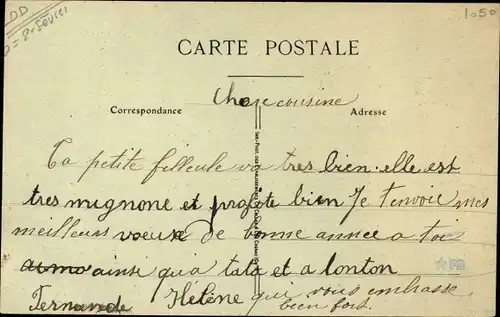 DD
1050
CARTE POSTALE
Correspondance
Adresse
Chere cousine
Ta petite filleule va tres bien. elle est
tres mignone et profote bien Je t'envoie mes
meilleurs voeux de bonne annee a toi
ainsi qu a tata et a tonton
Fernande Helène qui vous embrasse
bien fort.